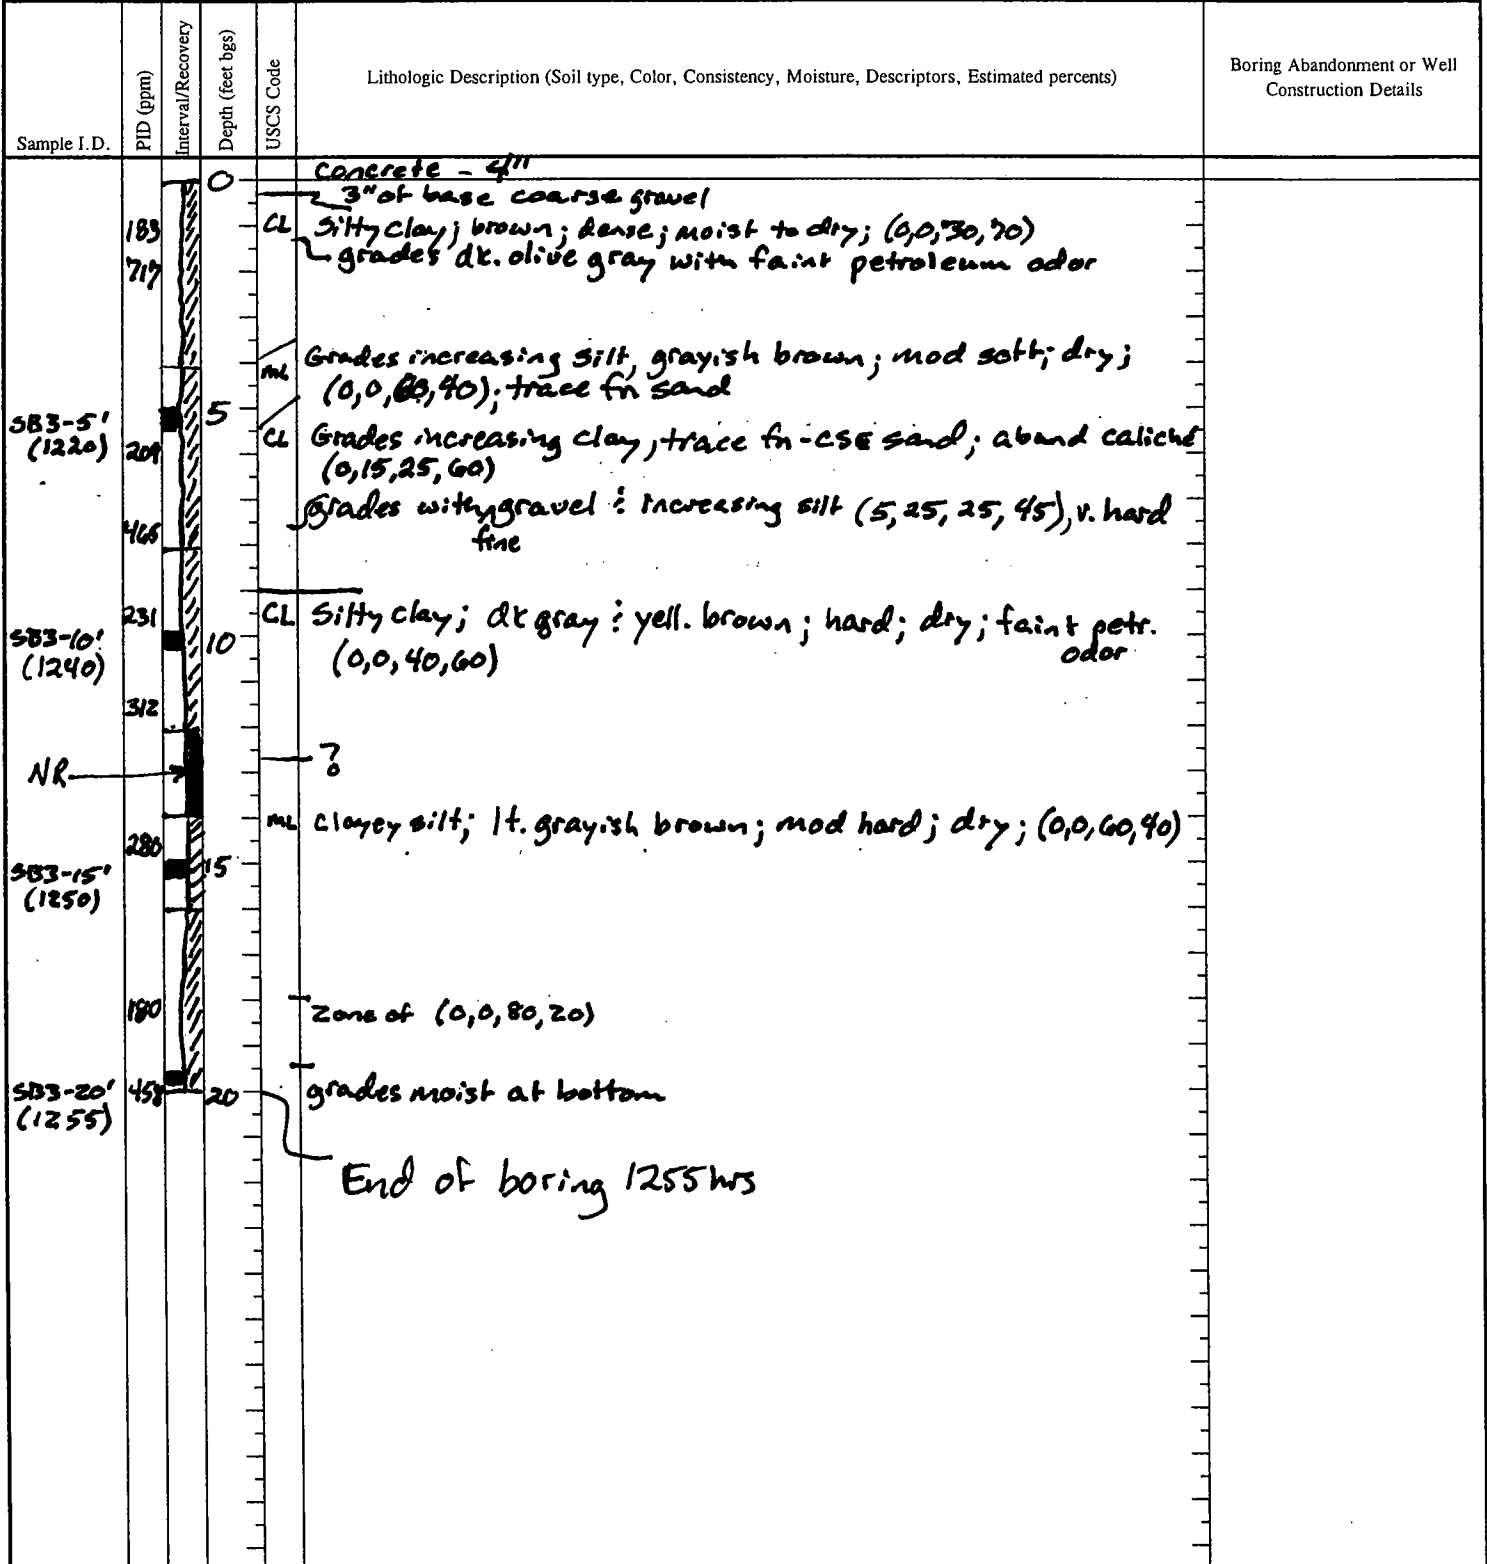 Sample I.D.
PID (ppm)
Interval/Recovery
Depth (feet bgs)
USCS Code
Lithologic Description (Soil type, Color, Consistency, Moisture, Descriptors, Estimated percents)
Boring Abandonment or Well
Construction Details
concrete - 4"
0
3" of base coarse gravel
183 CL Silty clay; brown; dense; moist to dry; (0,0,30,70)
717 grades dk. olive gray with faint petroleum odor
ML Grades increasing silt, grayish brown; mod soft; dry;
(0,0,60,40); trace fn sand
SB3-5' 5
(1220) 209 CL Grades increasing clay, trace fn-CSE sand; abund caliche
(0,15,25,60)
465 grades with fine gravel & increasing silt (5, 25, 25, 45), v. hard
231 CL Silty clay; dk gray & yell. brown; hard; dry; faint petr.
odor
SB3-10' 10
(1240) (0,0,40,60)
312
?
NR
ML clayey silt; lt. grayish brown; mod hard; dry; (0,0,60,40)
280
SB3-15' 15
(1250)
180 zone of (0,0,80,20)
SB3-20' 458 20 grades moist at bottom
(1255)
End of boring 1255 hrs